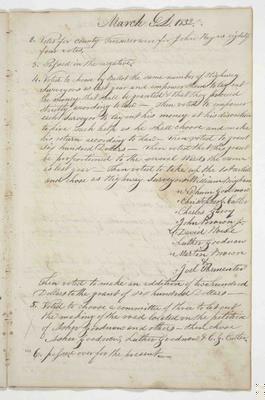 March A.D. 1832.
2. Votes for County Treasurer were for John Keyes eighty
four votes.
3. Passed in the negative.
4. Voted to chose by ballot the same number of Highway
Surveyors as last year and empower them to lay out
the money that shall be granted that they proceed
strictly according to law — Then voted to empower
each Surveyor to lay out his money at his discretion
to hire such help as he shall choose and make
his return according to law — Then voted to grant
six hundred Dollars — Then voted that the grant
be proportioned to the several Wards the same
as last year — Then voted to take up the
and chose as Highway Surveyors William
Goodnow
Christopher Cutler
Charles
John Brown Jr
David
Luther Goodnow
Martin Brown
&
Joel
Then voted to make an addition of two hundred
Dollars to the grant of six hundred Dollars —
5. Voted to choose a committee of three to let out
the making of the road located on the petition
of Asher Goodnow and others — then chose
Asher Goodnow, Luther Goodnow & C. G. Cutler
6. passed over for the present —